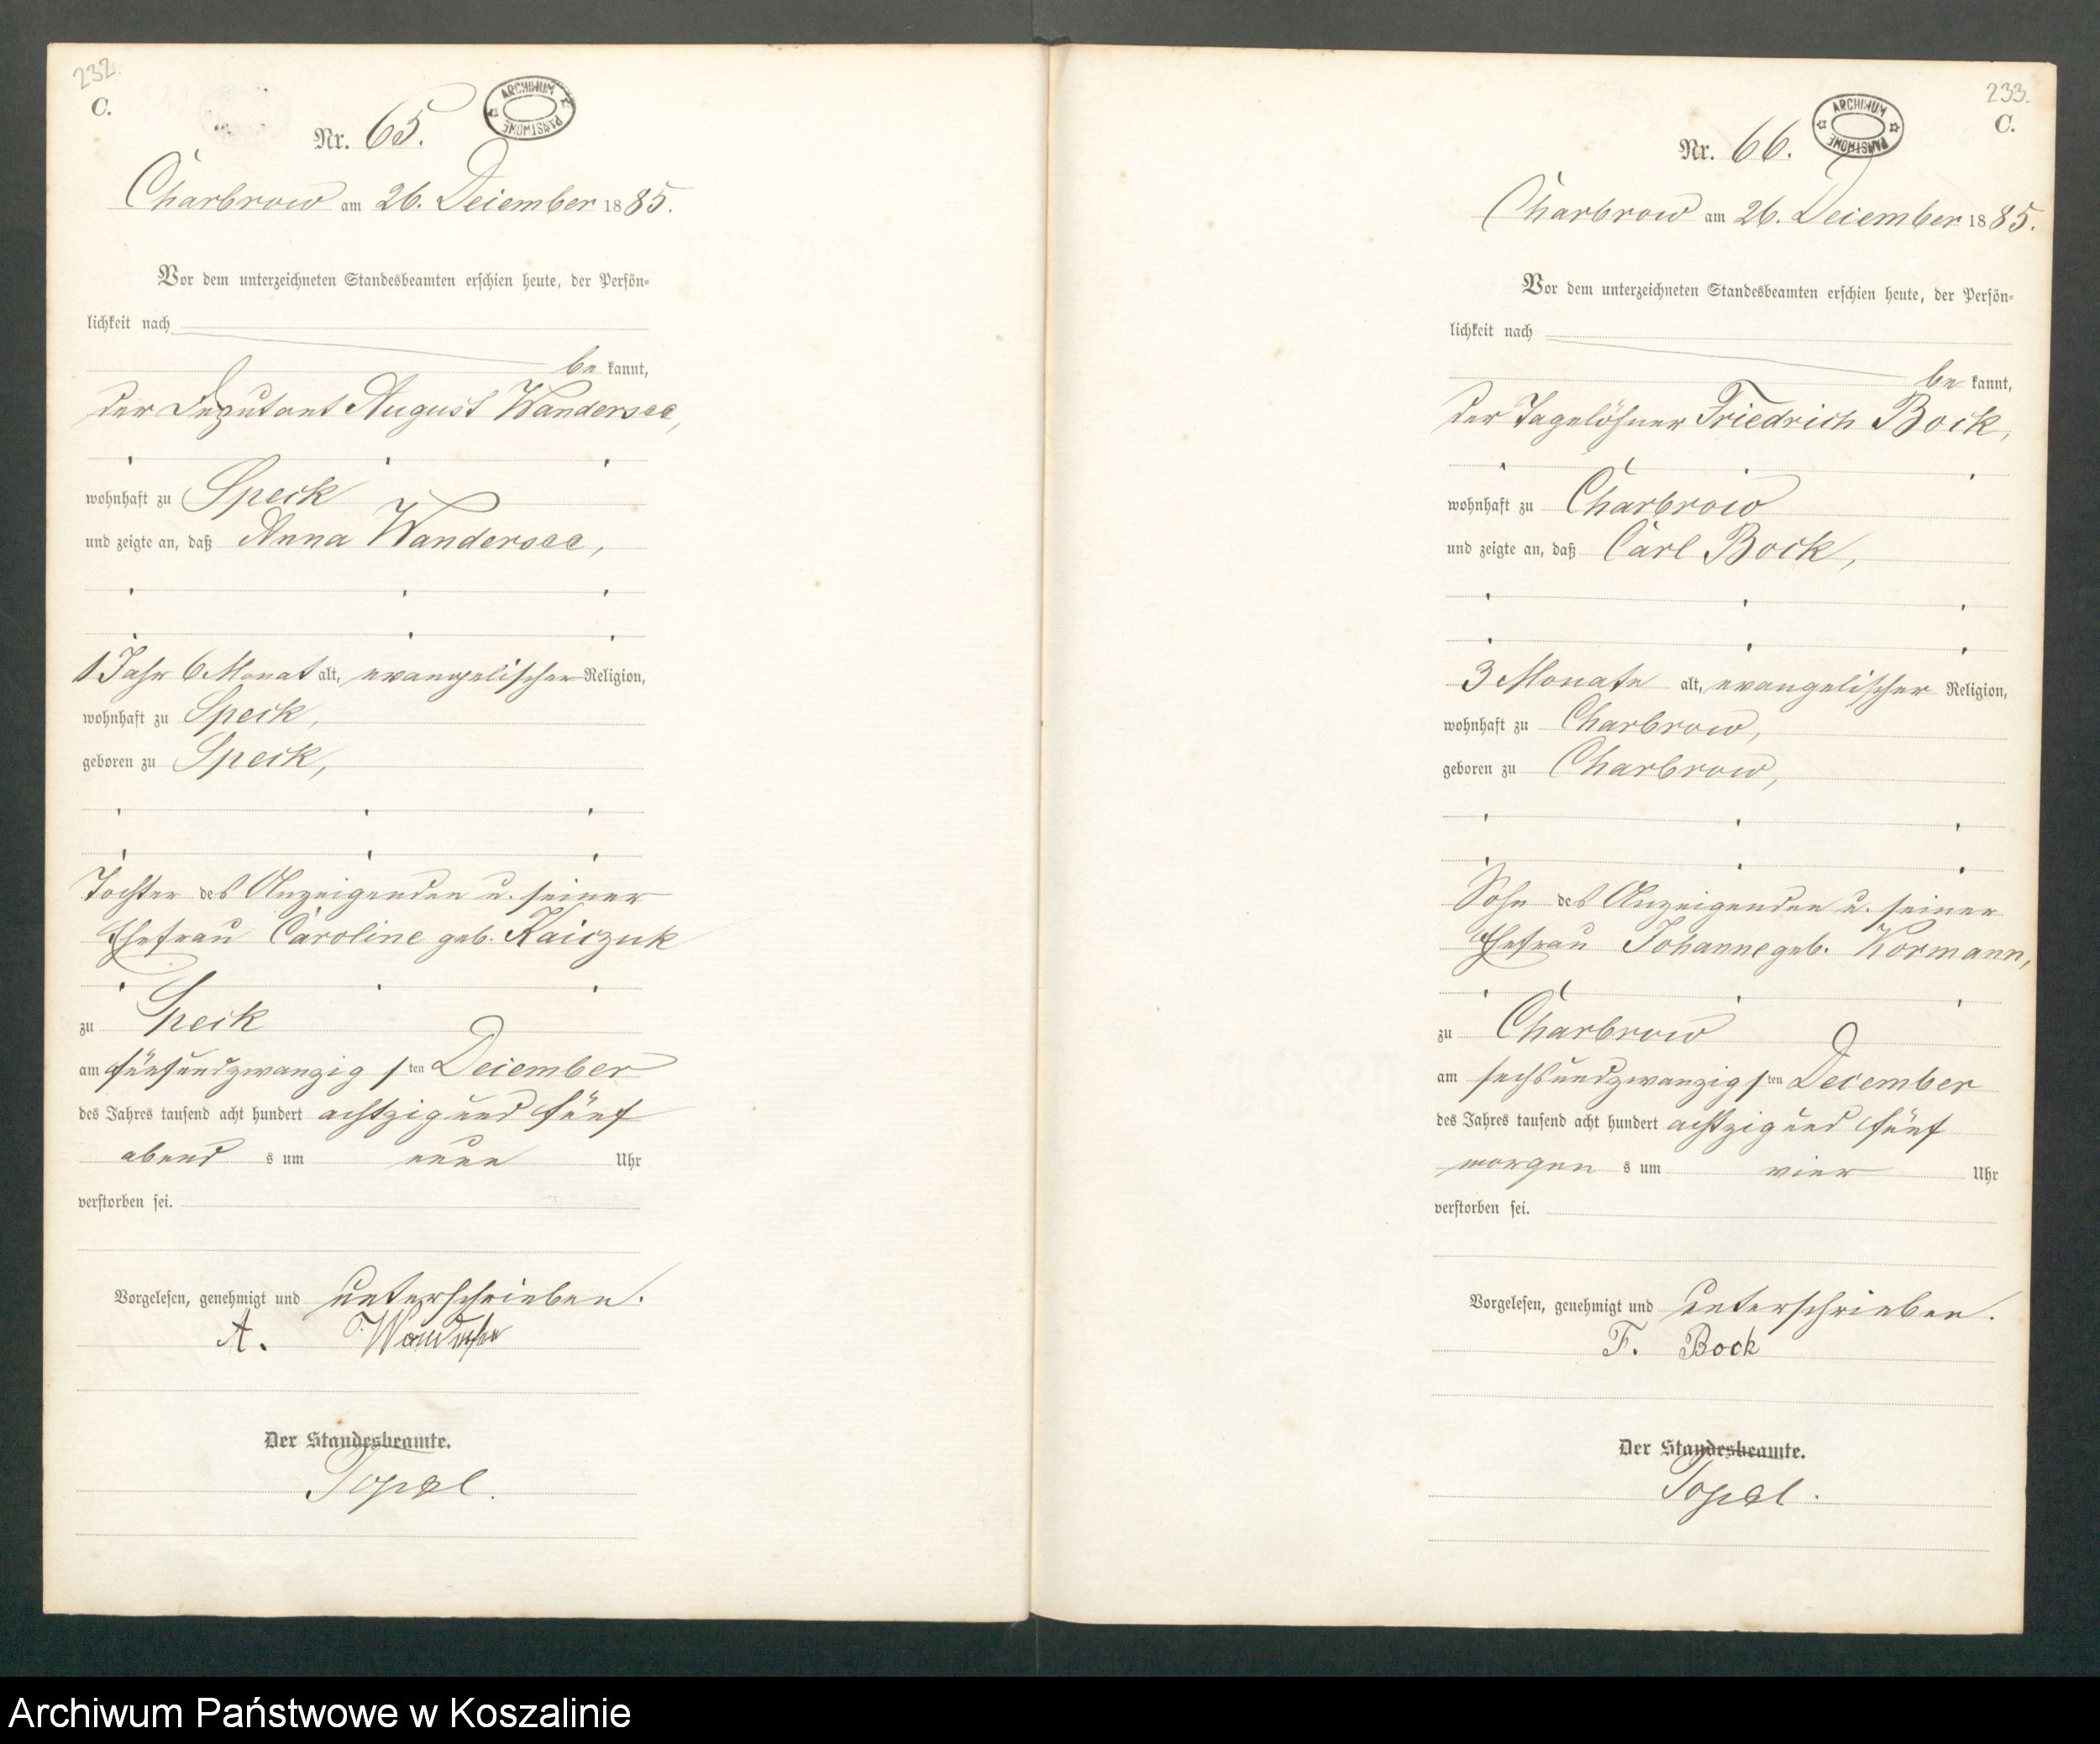 232.
C.
ARCHIWUM PAŃSTWOWE
Nr. 65.
Charbrow am 26. December 1885.
Vor dem unterzeichneten Standesbeamten erschien heute, der Persön-
lichkeit nach
be kannt,
der Deputant August Wandersee,
wohnhaft zu Speck
und zeigte an, daß Anna Wandersee,
1 Jahr 6 Monat alt, evangelischer Religion,
wohnhaft zu Speck,
geboren zu Speck,
Tochter des Anzeigenden u. seiner
Ehefrau Caroline geb. Kaiczuk
zu Speck
am fünfundzwanzigsten December
des Jahres tausend acht hundert achtzig und fünf
abend s um neun Uhr
verstorben sei.
Vorgelesen, genehmigt und unterschrieben.
A. Wandersee
Der Standesbeamte.
Topel.
233.
C.
ARCHIWUM PAŃSTWOWE
Nr. 66.
Charbrow am 26. December 1885.
Vor dem unterzeichneten Standesbeamten erschien heute, der Persön-
lichkeit nach
be kannt,
der Tagelöhner Friedrich Bock,
wohnhaft zu Charbrow
und zeigte an, daß Carl Bock,
3 Monate alt, evangelischer Religion,
wohnhaft zu Charbrow,
geboren zu Charbrow,
Sohn des Anzeigenden u. seiner
Ehefrau Johanne geb. Kormann,
zu Charbrow
am sechsundzwanzigsten December
des Jahres tausend acht hundert achtzig und fünf
morgen s um vier Uhr
verstorben sei.
Vorgelesen, genehmigt und unterschrieben.
F. Bock
Der Standesbeamte.
Topel.
Archiwum Państwowe w Koszalinie